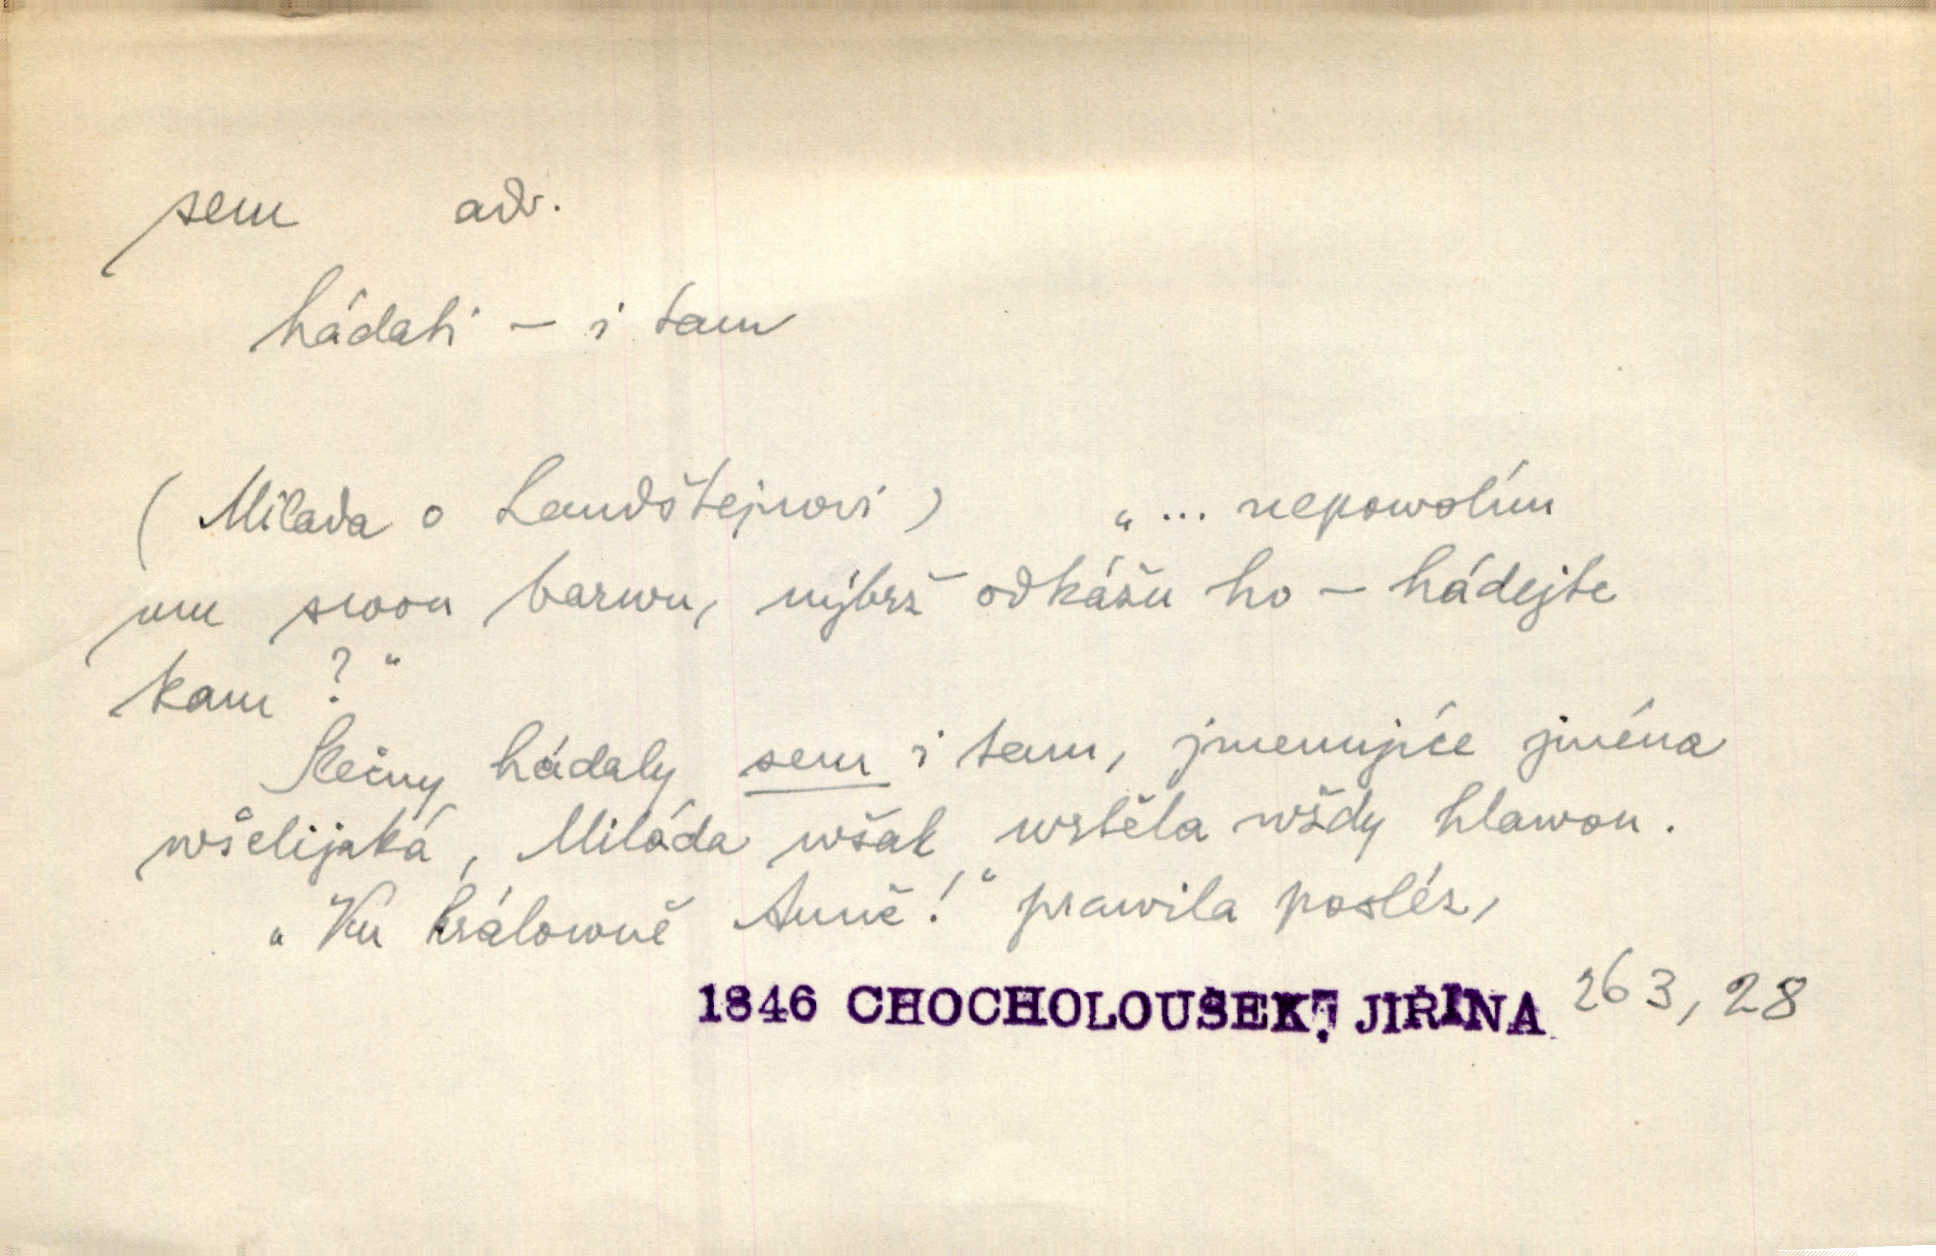 sem adv.
hádati – i tam
(Milada o Landštejnovi) „... nepowolím
mu swou barwu, nýbrž odkážu ho – hádejte
kam?“
Slečny hádaly sem i tam, jmenujíce jména
wšelijaká, Miláda wšak wrtěla wždy hlawou.
„Ku králowně Anně!“ prawila posléz,
1846 CHOCHOLOUŠEK, JIŘINA 263, 28